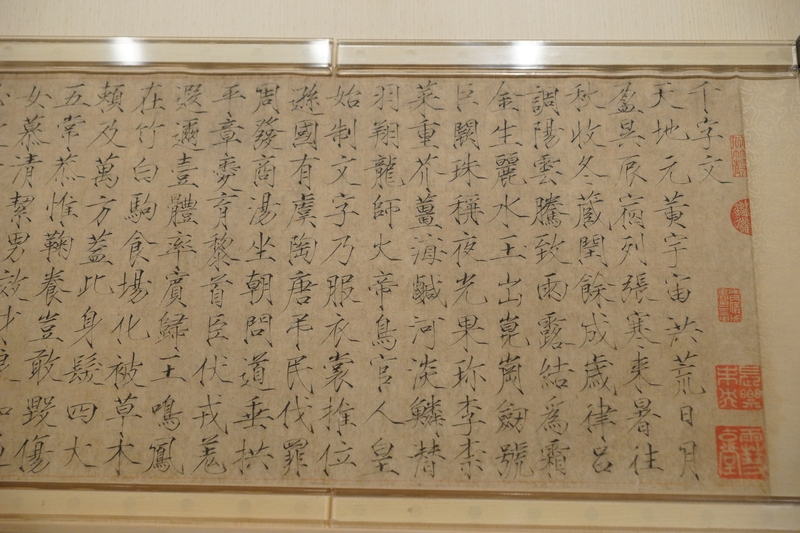 千字文
天地元黃宇宙洪荒日月
盈昃辰宿列張寒來暑往
秋收冬藏閏餘成歲律呂
調陽雲騰致雨露結為霜
金生麗水玉出崑崗劒號
巨闕珠稱夜光果珍李柰
菜重芥薑海鹹河淡鱗替
羽翔龍師火帝鳥官人皇
始制文字乃服衣裳推位
遜國有虞陶唐弔民伐罪
周發商湯坐朝問道垂拱
平章愛育黎首臣伏戎羌
遐邇壹體率賓歸王鳴鳳
在竹白駒食場化被草木
賴及萬方蓋此身髮四大
五常恭惟鞠養豈敢毀傷
女慕清絜男效才良知過